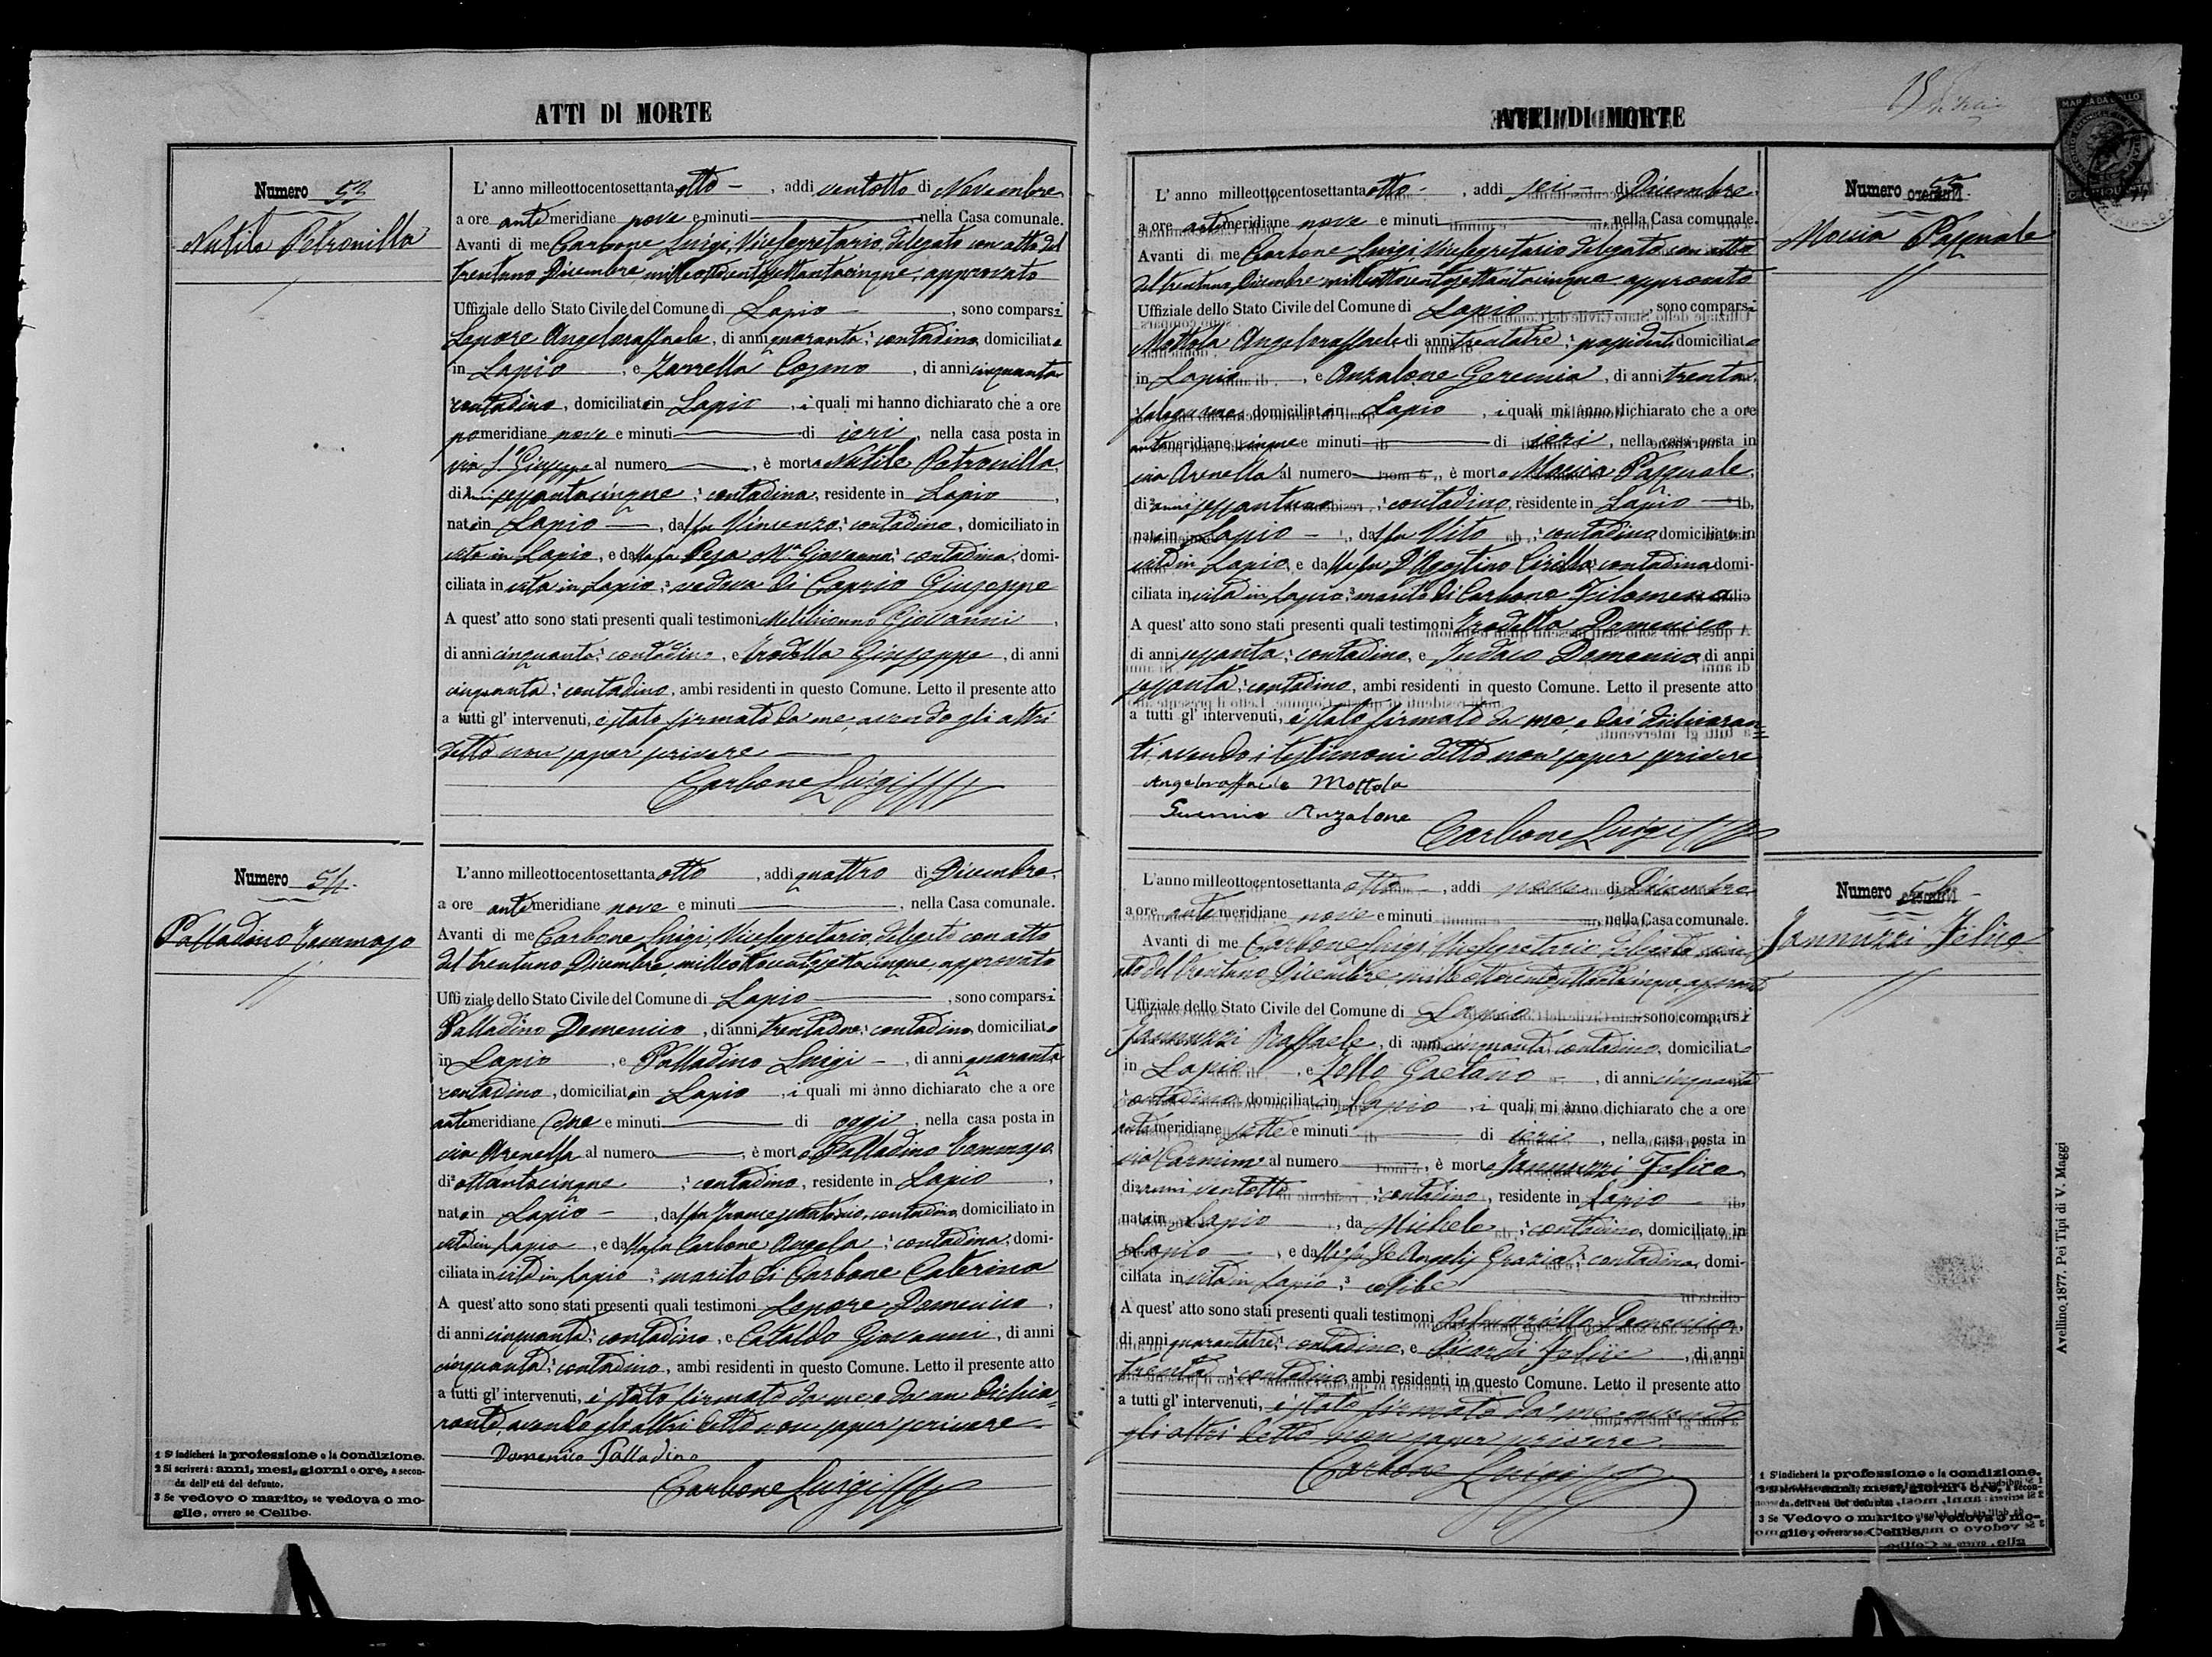 ATTI DI MORTE
Numero 53
Nutile Petronilla
L'anno milleottocentosettantaotto, addi ventotto di Novembre
a ore antimeridiane nove e minuti , nella Casa comunale.
Avanti di me Carbone Luigi, Vicesegretario, delegato con atto del
trentuno Dicembre milleottocentosettantacinque, approvato
Uffiziale dello Stato Civile del Comune di Lapio , sono comparsi
Lepore Angeloraffaele, di anni quaranta, contadino domiciliato
in Lapio , e Zarrella Cosmo , di anni cinquanta
contadino, domiciliato in Lapio , i quali mi hanno dichiarato che a ore
pomeridiane nove e minuti di ieri , nella casa posta in
via S. Giuseppe al numero , è morta Nutile Petronilla,
di anni sessantacinque , contadina, residente in Lapio ,
nata in Lapio , dal fu Vincenzo, contadino, domiciliato in
vita in Lapio, e dalla fu Pesa Ma Giovanna, contadina, domi-
ciliata in vita in Lapio, vedova di Caprio Giuseppe
A quest' atto sono stati presenti quali testimoni Giovanni ,
di anni cinquanta, contadino, e Trodella Giuseppe, di anni
cinquanta, contadino, ambi residenti in questo Comune. Letto il presente atto
a tutti gl' intervenuti, è stato firmato da me, avendo gli altri
detto non saper scrivere
Carbone Luigi
Numero 54.
Palladino Tommaso
L'anno milleottocentosettantaotto , addi quattro di Dicembre,
a ore antimeridiane nove e minuti , nella Casa comunale.
Avanti di me Carbone Luigi, Vicesegretario, delegato con atto
del trentuno Dicembre, milleottocentosettantacinque, approvato
Uffiziale dello Stato Civile del Comune di Lapio , sono comparsi
Palladino Domenico , di anni trentadue, contadino domiciliato
in Lapio , e Palladino Luigi , di anni quaranta
contadino, domiciliato in Lapio , i quali mi ànno dichiarato che a ore
antimeridiane due e minuti di oggi , nella casa posta in
via Arenella al numero , è morto Palladino Tommaso
di ottantacinque , contadino, residente in Lapio ,
nato in Lapio , dal fu Francescantonio, contadino, domiciliato in
vita in Lapio , e dalla fu Carbone Angela , contadina, domi-
ciliata in vita in Lapio , marito di Carbone Caterina
A quest' atto sono stati presenti quali testimoni Lepore Domenico ,
di anni cinquanta, contadino, e Cataldo Giovanni, di anni
cinquanta, contadino, ambi residenti in questo Comune. Letto il presente atto
a tutti gl' intervenuti, è stato firmato da me, e da un dichia=
rante, avendo gli altri detto non saper scrivere
Domenico Palladino
Carbone Luigi
1 S'indicherà la professione o la condizione.
2 Si scriverà: anni, mesi, giorni o ore, a secon-
da dell' età del defunto.
3 Se vedovo o marito, se vedova o mo-
glie, ovvero se Celibe.
ATTI DI MORTE
MARCA DA BOLLO
Numero 55
Moccia Pasquale
L' anno milleottocentosettantaotto , addi sei di Dicembre
a ore antimeridiane nove e minuti , nella Casa comunale.
Avanti di me Carbone Luigi, Vicesegretario delegato con atto
del trentuno Dicembre milleottocentosettantacinque approvato
Uffiziale dello Stato Civile del Comune di Lapio , sono comparsi
Mottola Angeloraffaele di anni trentatre, possidente domiciliato
in Lapio , e Anzalone Geremia , di anni trenta
falegname domiciliato in Lapio , i quali mi ànno dichiarato che a ore
antimeridiane cinque e minuti di ieri , nella casa posta in
via Arenella al numero , è morto Moccia Pasquale,
di anni sessantuno , contadino, residente in Lapio
nato in Lapio , dal fu Vito , contadino domiciliato in
vita in Lapio, e dalla fu D'Agostino Cirilla contadina domi-
ciliata in vita in Lapio, marito di Carbone Filomena
A quest' atto sono stati presenti quali testimoni Trodella Domenico,
di anni sessanta, contadino, e Iudaco Domenico di anni
sessanta, contadino, ambi residenti in questo Comune. Letto il presente atto
a tutti gl' intervenuti, è stato firmato da me, e dai dichiaran=
ti avendo i testimoni detto non saper scrivere
Angeloraffaele Mottola
Geremia Anzalone
Carbone Luigi
Numero 56
Jannuzzi Felice
L'anno milleottocentosettantaotto , addi nove di Dicembre
a ore antimeridiane nove e minuti , nella Casa comunale.
Avanti di me Carbone Luigi Vicesegretario delegato con at=
to del trentuno Dicembre milleottocentosettantacinque, approvato
Uffiziale dello Stato Civile del Comune di Lapio sono comparsi
Jannuzzi Raffaele, di anni cinquanta contadino, domiciliato
in Lapio , e Zollo Gaetano , di anni cinquanta
contadino domiciliato in Lapio , i quali mi ànno dichiarato che a ore
antimeridiane sette e minuti di ieri , nella casa posta in
via Carmine al numero , è morto Jannuzzi Felice,
di anni ventotto , contadino, residente in Lapio
nato in Lapio , da Michele , contadino, domiciliato in
Lapio , e dalla fu De Angelis Grazia, contadina, domi-
ciliata in vita in Lapio, celibe
A quest' atto sono stati presenti quali testimoni Domenico,
di anni quarantatre, contadino, e Felice , di anni
trenta , contadino, ambi residenti in questo Comune. Letto il presente atto
a tutti gl' intervenuti, è stato firmato da me avendo
gli altri detto non saper scrivere.
Carbone Luigi
1 S'indicherà la professione o la condizione.
2 Si scriverà: anni, mesi, giorni o ore, a secon-
da dell' età del defunto.
3 Se Vedovo o marito, se vedova o mo-
glie, ovvero se Celibe.
Avellino, 1877. Pei Tipi di V. Maggi